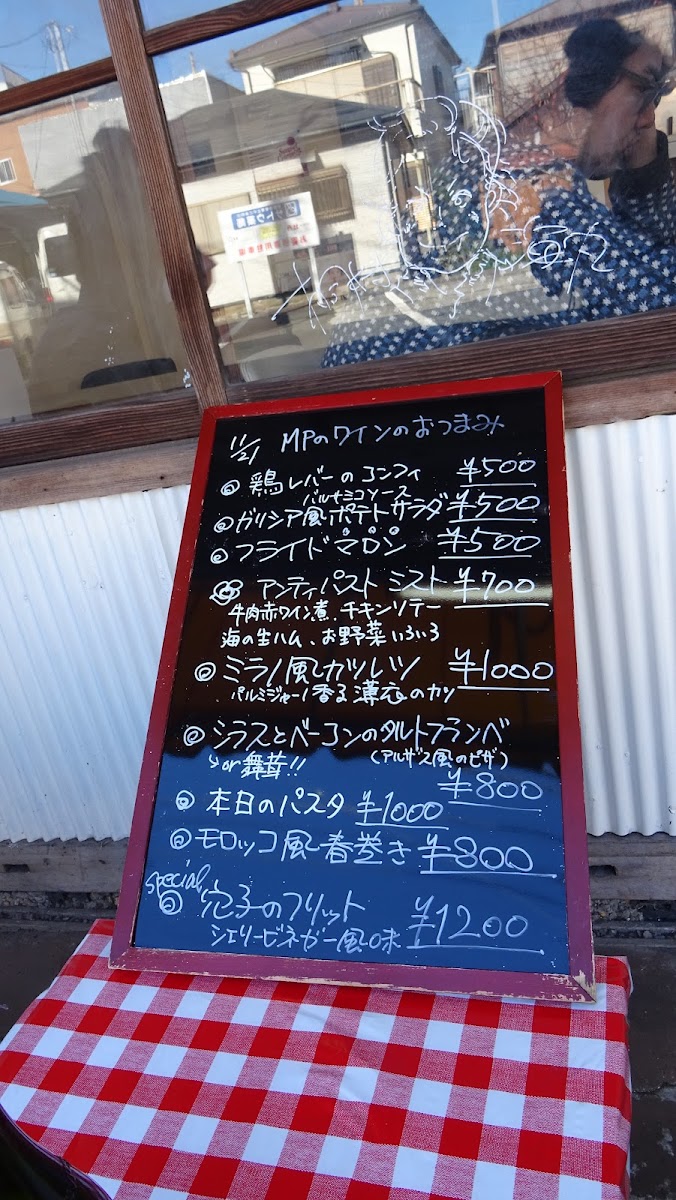 サトウ薬局
11/21 MPのワインのおつまみ
◎鶏レバーのコンフィ ¥500
バルサミコソース
◎ガリシア風ポテトサラダ ¥500
◎フライドマロン ¥500
◎アンティパスト ミスト ¥700
牛肉赤ワイン煮、チキンソテー
海の生ハム、お野菜いろいろ
◎ミラノ風カツレツ ¥1000
パルミジャーノ香る薄衣のカツ
◎シラスとベーコンのタルトフランベ
↳or舞茸!! (アルザス風のピザ)
¥800
◎本日のパスタ ¥1000
◎モロッコ風春巻き ¥800
special
◎穴子のフリット ¥1200
シェリービネガー風味